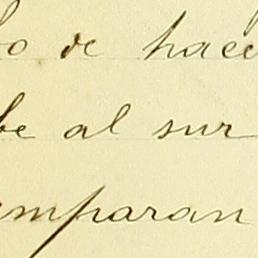 de hace
al sur
mparan